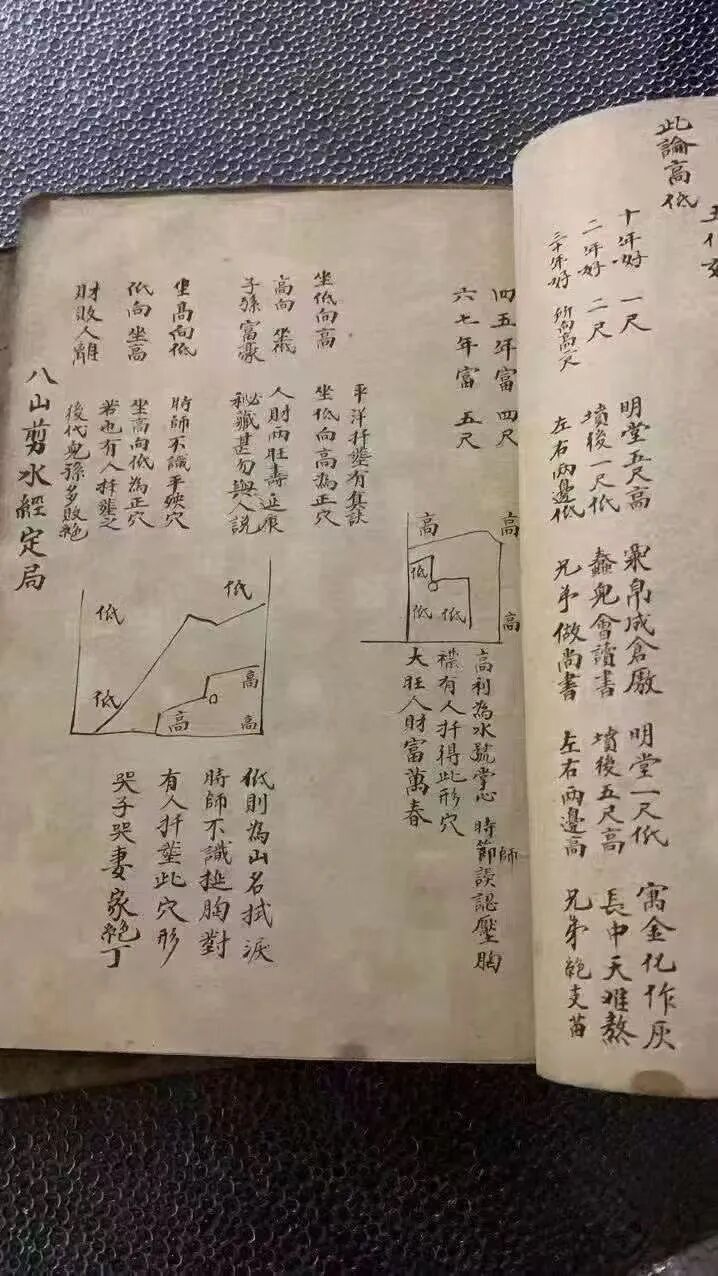 此論高低
十年好 一尺
二年好 二尺
三十年好 所向高一尺
明堂五尺高
墳後一尺低
左右兩邊低
粟帛成倉廒
蠢兒會讀書
兄弟做尚書
明堂一尺低
墳後五尺高
左右兩邊高
寓金化作灰
長中天难熬
兄弟絕支苗
四五年富 四尺
六七年富 五尺
平洋扦塋有真訣
坐低向高為正穴
人財兩旺壽延長
秘藏甚勿與人説
坐低向高
高向 坐低
子孫富豪
高
高
低
低
低
高
高利為水號掌心
時師節讀認壓胸
襟有人扦得此形穴
大旺人財富萬春
坐高向低
低向 坐高
財敗人離
時師不識平殃穴
坐高向低為正穴
若也有人扦塋之
後代兒孫多敗絕
低
低
低
高
高
高
低則為山名拭淚
時師不識捶胸對
有人扦塋此穴形
哭子哭妻家絕丁
八山剪水經定局